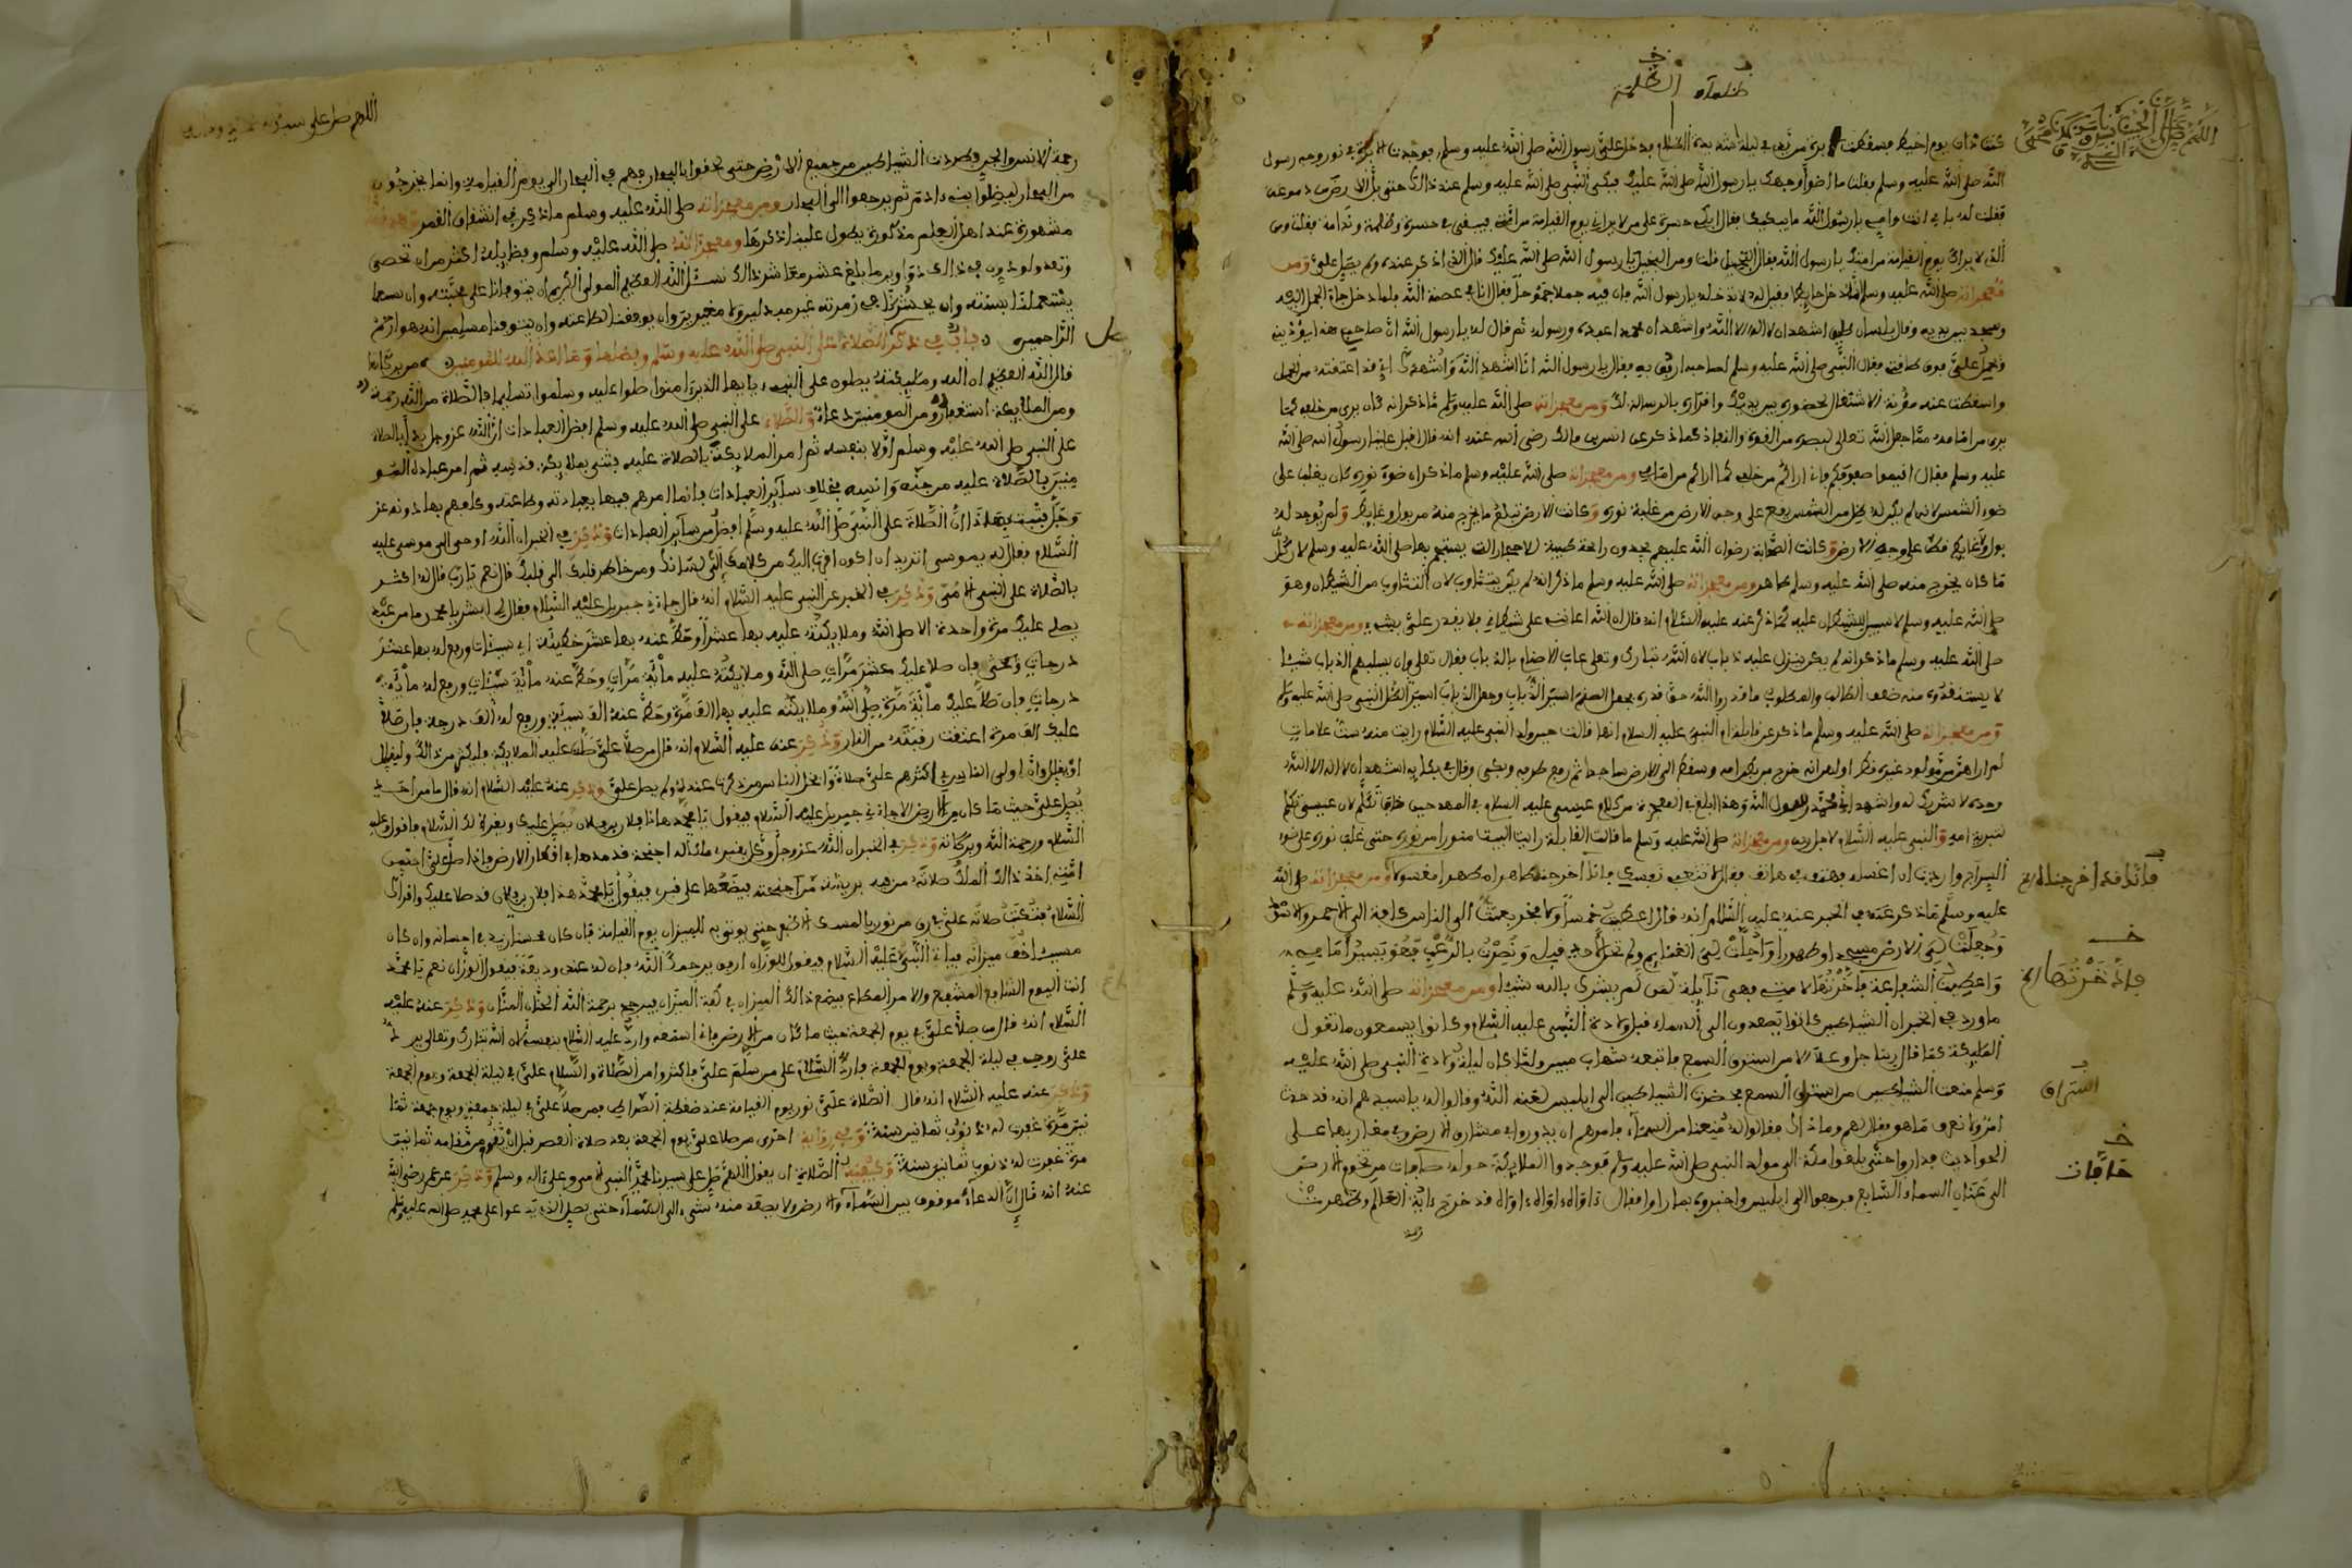 كنت ذات يوم اخيط فسقطت الابرة من يدي في ليلة شديدة الظلام فدخل علي رسول الله صلى الله عليه وسلم فوجدت الابرة في نور وجه رسول
الله صلى الله عليه وسلم فقلت ما اضوأ وجهك يا رسول الله صلى الله عليك فبكى النبي صلى الله عليه وسلم عند ذالك حتى بل الارض دموعه
فقلت له بابي انت وامي يا رسول الله ما يبكيك فقال ابكي حسرة على من لا يراني يوم القيامة من امتي فيبقى في حسرة وظلمة وندامة فقلت ومن
الذي لا يراك يوم القيامة من امتك يا رسول الله فقال البخيل قلت ومن البخيل يا رسول الله صلى الله عليك قال الذي اذكر عنده ولم يصل علي ومن
معجزاته صلى الله عليه وسلم انه دخل حايطا فقيل له لا تدخله يا رسول الله فان فيه جملا فقال انا في عصمة الله فلما دخل جاء الجمل اليه
وسجد بين يديه وقال بلسان اشهد ان لا اله الا الله واشهد ان محمدا عبده ورسوله ثم قال له يا رسول الله ان صاحبي هذا يؤذيني
ويحمل علي فوق طاقتي فقال النبي صلى الله عليه وسلم لصاحبه ارفق به فقال يا رسول الله انا اشهد الله واشهدك اني قد اعتقته من العمل
واسقطت عنه مؤنة الاشتغال لحضوره بين يديك واقراره بالرسالة لك ومن معجزاته صلى الله عليه وسلم ما ذكر انه كان يرى من خلفه كما
يرى من امامه مما جعل الله تعالى لبصره من القوة والنفاذ كما ذكر عن انس بن مالك رضي الله عنه انه قال اقبل علينا رسول الله صلى الله
عليه وسلم فقال اقيموا صفوفكم فاني اراكم من خلفي كما اراكم من امامي ومن معجزاته صلى الله عليه وسلم ما ذكر ان ضوء نوره كان يغلب على
ضوء الشمس لانه لم يكن له ظل من الشمس يقع على وجه الارض من غلبة نوره وكانت الارض تبتلع ما يخرج منه من بول وغايط ولم يوجد له
بول ولا غايط قط على وجه الارض وكانت الصحابة رضوان الله عليهم يجدون رائحة طيبة لاحجار التي يستنجم بها صلى الله عليه وسلم لان كل
ما كان يخرج منه صلى الله عليه وسلم طاهر ومن معجزاته صلى الله عليه وسلم ما ذكر انه لم يكن يتثاوب لان التثاوب من الشيطان وهو
صلى الله عليه وسلم لا سبيل للشيطان عليه كما ذكر عنه عليه السلام انه قال ان الله اعانني على شيطاني فلا يقدر علي بشيء ومن معجزاته
صلى الله عليه وسلم ما ذكر انه لم يكن ينزل عليه ذباب لان الله تبارك وتعلى عاب الاصنام بالذباب فقال تعلى وان يسلبهم الذباب شيئا
لا يستنقذوه منه ضعف الطالب والمطلوب ما قدروا الله حق قدره
ومن معجزاته صلى الله عليه وسلم ما ذكر عن قابلة ام النبي عليه السلام انها قالت حين ولد النبي عليه السلام رايت منه ست علامات
لم ارها من مولود غيره قط اولها انه خرج من بطن امه وسقط الى الارض ساجدا ثم رفع طرفه وبكى وقال في بكايه اشهد ان لا اله الا الله
وحده لا شريك له واشهد اني محمد رسول الله وهذا ابلغ في المعجزة من كلام عيسى عليه السلام في المهد حين تكلم لان عيسى تكلم
تبرية امه والنبي عليه السلام لاجل ربه ومن معجزاته صلى الله عليه وسلم ما قالت القابلة رايت البيت منورا من نوره حتى غلب نوره على ضوء
السراج واردت ان اغسله فهتف بي هاتف فقال لا تتعبي نفسك فانا اخرجناه طاهرا مطهرا مغسولا ومن معجزاته صلى الله
عليه وسلم ما ذكر عنه في الخبر عنه عليه السلام انه قال اعطيت خمسا ولا فخر بعثت الى الناس كافة الى الاحمر والاسود
وجعلت لي الارض مسجدا وطهورا واحلت لي الغنايم ولم تحل لاحد قبلي ونصرت بالرعب
واعطيت الشفاعة فاخرتها لامتي فهي نايلة لمن لم يشرك بالله شيئا ومن معجزاته صلى الله عليه وسلم
ما ورد في الخبر ان الشياطين كانوا يصعدون الى السماء قبل ولادة النبي عليه السلام وكانوا يسمعون ما تقول
الملايكة كما قال ربنا جل وعلا الا من استرق السمع فاتبعه شهاب مبين ولما كان ليلة ولادة النبي صلى الله عليه
وسلم منعت الشياطين من استراق السمع فحضرت الشياطين الى ابليس لعنه الله وقالوا له يا سيدهم انه قد حدث
امر ولا نعرف ما هو فقال لهم وما ذاك فقالوا له منعنا من السماء فامرهم ان يدوروا في مشارق الارض ومغاربها على
الحوادث فداروا حتى بلغوا مكة الى مولد النبي صلى الله عليه وسلم فوجدوا الملايكة حوله من تخوم الارض
الى عنان السماء السابع فرجعوا الى ابليس واخبروه بما راوا فقال اواه اواه اواه قد خرج العالم وظهرت
رحمة
فانا قد اخرجناه الخ
فاخرتها الخ
استراق
حافات
الظلمة
رحمة الانس والجن وطردت الشياطين من جميع الارض حتى لحقوا بالبحار فهم في البحار الى يوم القيامة وانما يخرجون
من البحار ليضلوا بني ءادم ثم يرجعوا الى البحار ومن معجزاته صلى الله عليه وسلم ما ذكر في انشقاق القمر
مشهورة عند اهل العلم مذكورة يطول علينا ذكرها ومعجزاته صلى الله عليه وسلم وفضايله اكثر من ان تحصى
وتعد نسئل الله العظيم المولى الكريم ان يتوفانا على محبته وان
يستعملنا بسنته وان يحشرنا في زمرته غير مبدلين ولا مغيرين وان يوفقنا لطاعته وان يتوفنا مسلمين انه هو ارحم
الراحمين باب في ذكر الصلاة على النبي صلى الله عليه وسلم وفضلها وما اعد الله للمومنين من بركاتها
قال الله العظيم ان الله وملايكته يصلون على النبي يايها الذين ءامنوا صلوا عليه وسلموا تسليما فالصلاة من الله رحمة
ومن الملايكة استغفار ومن المومنين دعاء والصلاة على النبي صلى الله عليه وسلم افضل العبادات لان الله عز وجل بدأ بالصلاة
على النبي صلى الله عليه وسلم اولا بنفسه ثم امر الملايكة بالصلاة عليه فثنى بملايكة قدسه ثم امر عباده المو
منين بالصلاة عليه من جنه وانسه بخلاف ساير العبادات فانما امرهم فيها بعبادته وطاعته وكلفهم بها دونه عز
وجل فثبت بهذا ان الصلاة على النبي صلى الله عليه وسلم افضل من ساير العبادات وذكر في الخبر ان الله اوحى الى موسى عليه
السلام فقال له يموسى اتريد ان اكون اقرب اليك من كلامك الى لسانك ومن خاطر قلبك الى قلبك قال نعم يا رب قال له اكثر
بالصلاة على النبي الامي وذكر في الخبر عن النبي عليه السلام انه قال جاءني جبريل عليه السلام فقال لي ابشر يا محمد ما من عبد
يصلي عليك مرة واحدة الا صلى الله وملايكته عليه بها عشرا وحط عنه بها عشر خطيئة اي سيئات ورفع له بها عشر
درجات فان صلا عليك عشر مرات صلى الله وملايكته عليه مائة مرات وحط عنه مائة سيئات ورفع له مائة
درجات فان صلا عليك مائة مرة صلى الله وملايكته عليه بها الف مرة وحط عنه الف سيئة ورفع له الف درجة فان صلا
عليك الف مرة اعتقت رقبته من النار وذكر عنه عليه السلام انه قال من صلا علي صلت عليه الملايكة فليكثر من ذالك وليقلل
اولى الناس بي اكثرهم علي صلاة وابخل الناس من ذكرت عنده ولم يصل علي وذكر عنه عليه السلام انه قال ما من احد
يصل علي حيث ما كان من الارض الا جاءني جبريل عليه السلام فيقول يا محمد هذا فلان بن فلان يصل عليك ويقرئ لك السلام فاقول وعليه
السلام ورحمة الله وبركاته وذكر في الخبر ان الله عز وجل وكل بقبري ملكا له اجنحة قد مدها في اقطار الارض فاذا صلى علي احد من
امتي اخذ ذالك الملك صلاته من فيه بريشة من اجنحته فيضعها على قبري فيقول يا محمد هذا فلان بن فلان قد صلا عليك واقراك
السلام فتكتب صلاته علي في رق من نور بالمسك حتى يوتى به للميزان يوم القيامة فان كان محسنا زيد في احسانه وان كان
مسيئا خف ميزانه فياتي النبي عليه السلام فيقول للوزان ارفق يرحمك الله فان له عندي وديعة فيقول الوزان نعم يا محمد
انت اليوم الشافع المشفع والامر المطاع فيضع ذالك الميزان في كفة الميزان فيرجح برحمة الله الحنان المنان وذكر عنه عليه
السلام انه قال من صلا علي في يوم الجمعة حيث ما كان من الارض فاني اسمعه وارد عليه السلام بنفسي لان الله تبارك وتعالى يرد
علي روحي في ليلة الجمعة ويوم الجمعة فارد السلام على من سلم علي فاكثروا من الصلاة والسلام علي في ليلة الجمعة ويوم الجمعة
وذكر عنه عليه السلام انه قال الصلاة علي نور يوم القيامة عند ضغطة الصراط فمن صلا علي في ليلة جمعة ويوم جمعة ثما
نين مرة غفرت له ذنوب ثمانين سنة وفي رواية اخرى من صلا علي يوم الجمعة بعد صلاة العصر قبل ان يقوم من مقامه ثمانين
مرة غفرت له ذنوب ثمانين سنة وكيفية الصلاة ان يقول اللهم صل على سيدنا محمد النبي الامي وعلى ءاله وسلم وذكر عن عمر رضي الله
عنه انه قال ان الدعاء موقوف بين السماء والارض ولا يصعد منه شيء الى السماء حتى يصل الذي يدعوا على محمد صلى الله عليه وسلم